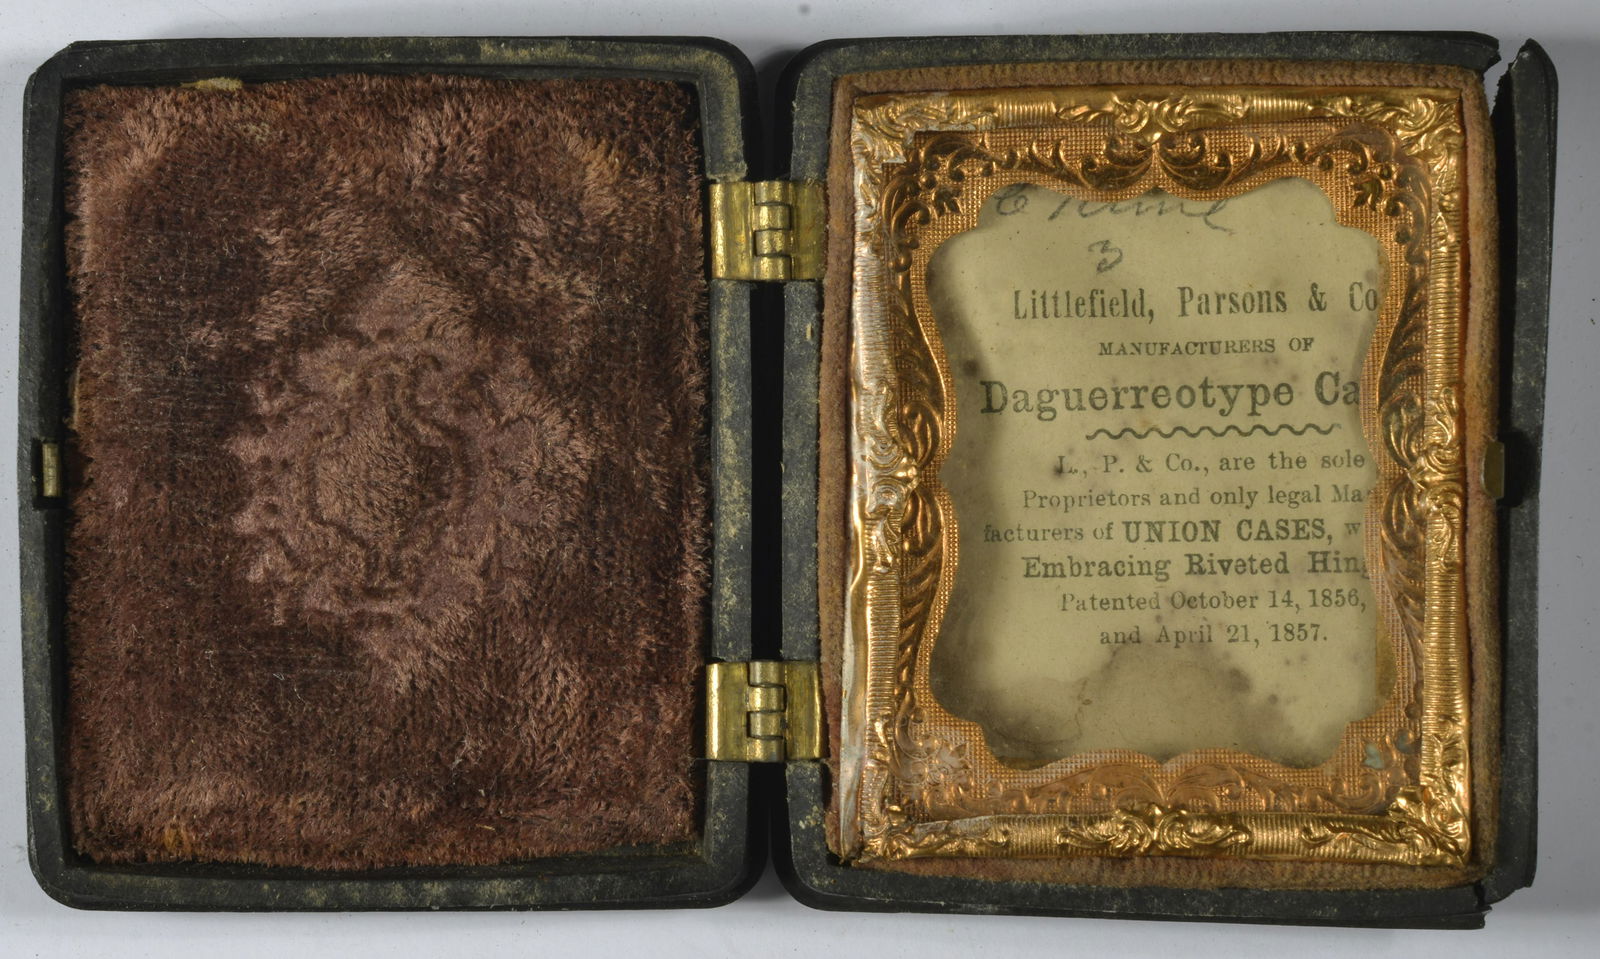 3
Littlefield, Parsons & Co
MANUFACTURERS OF
Daguerreotype Ca
L., P. & Co., are the sole
Proprietors and only legal Ma
facturers of UNION CASES, w
Embracing Riveted Hing
Patented October 14, 1856,
and April 21, 1857.